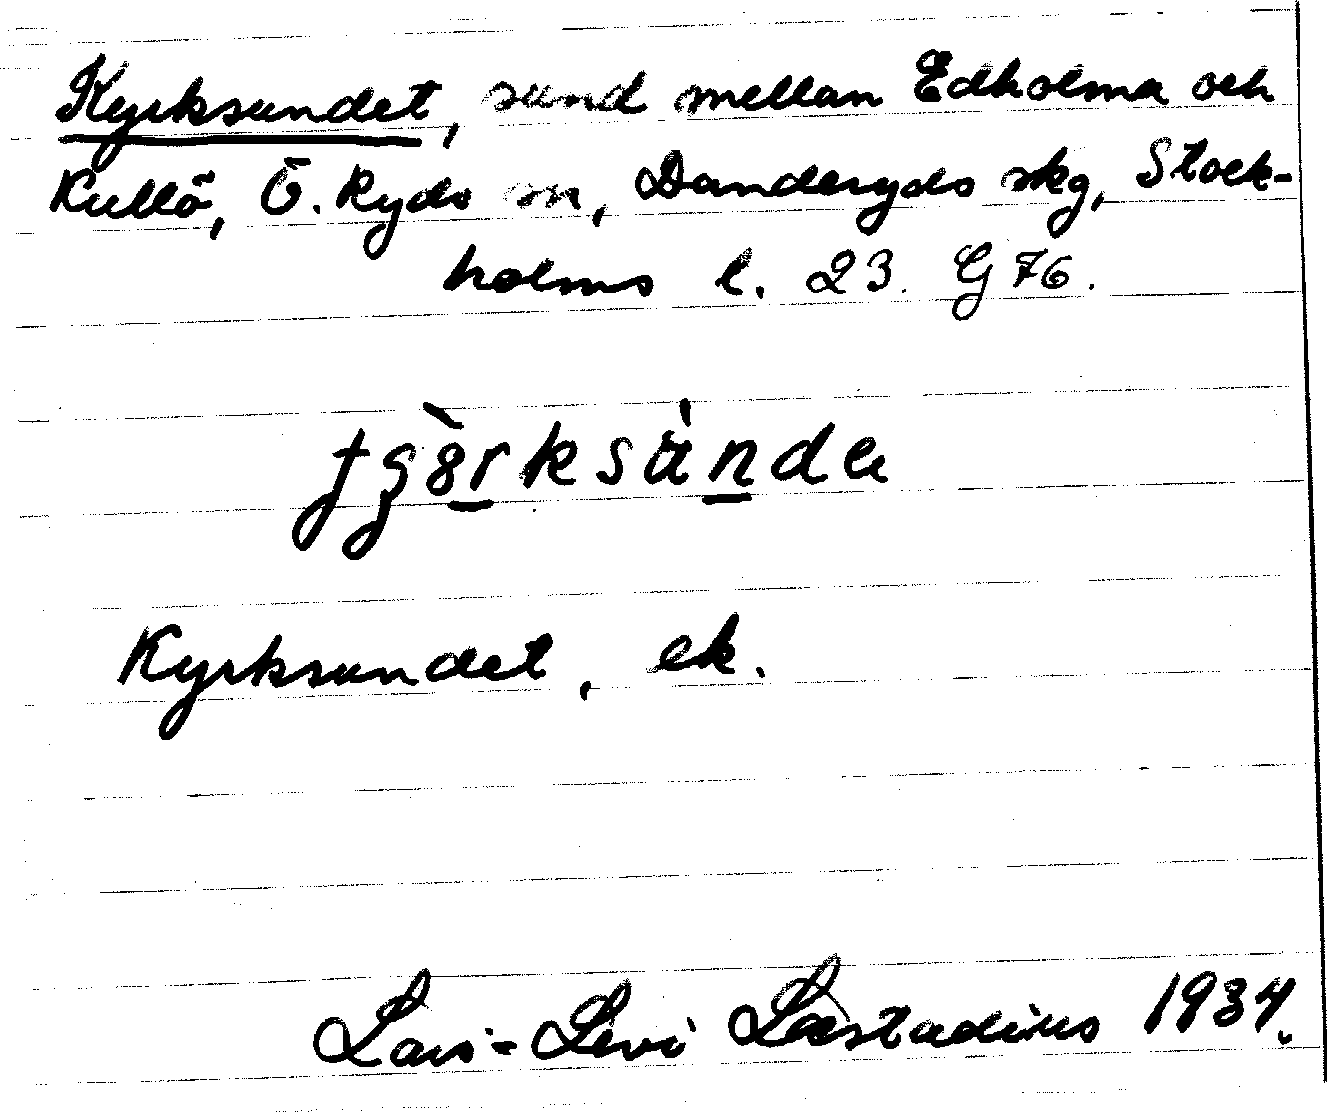 Kyrksundet, sund mellan Edholma och
Kullö, Ö. Ryds sn, Danderyds skg, Stock-
holms l. 23. G 76.
Kyrksundet, ek.
Lars-Levi Læstadius 1934.